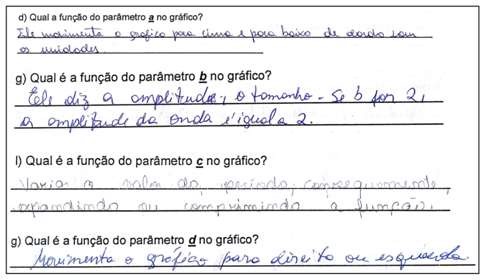 d) Qual a função do parâmetro a no gráfico?
Ele movimenta o gráfico para cima e para baixo de acordo com
as unidades.
g) Qual é a função do parâmetro b no gráfico?
Ele diz a amplitude, o tamanho - Se b for 2,
a amplitude da onda é igual a 2.
l) Qual é a função do parâmetro c no gráfico?
Varia o valor do período, consequentemente,
expandindo ou comprimindo a função.
g) Qual é a função do parâmetro d no gráfico?
Movimenta o gráfico para direita ou esquerda